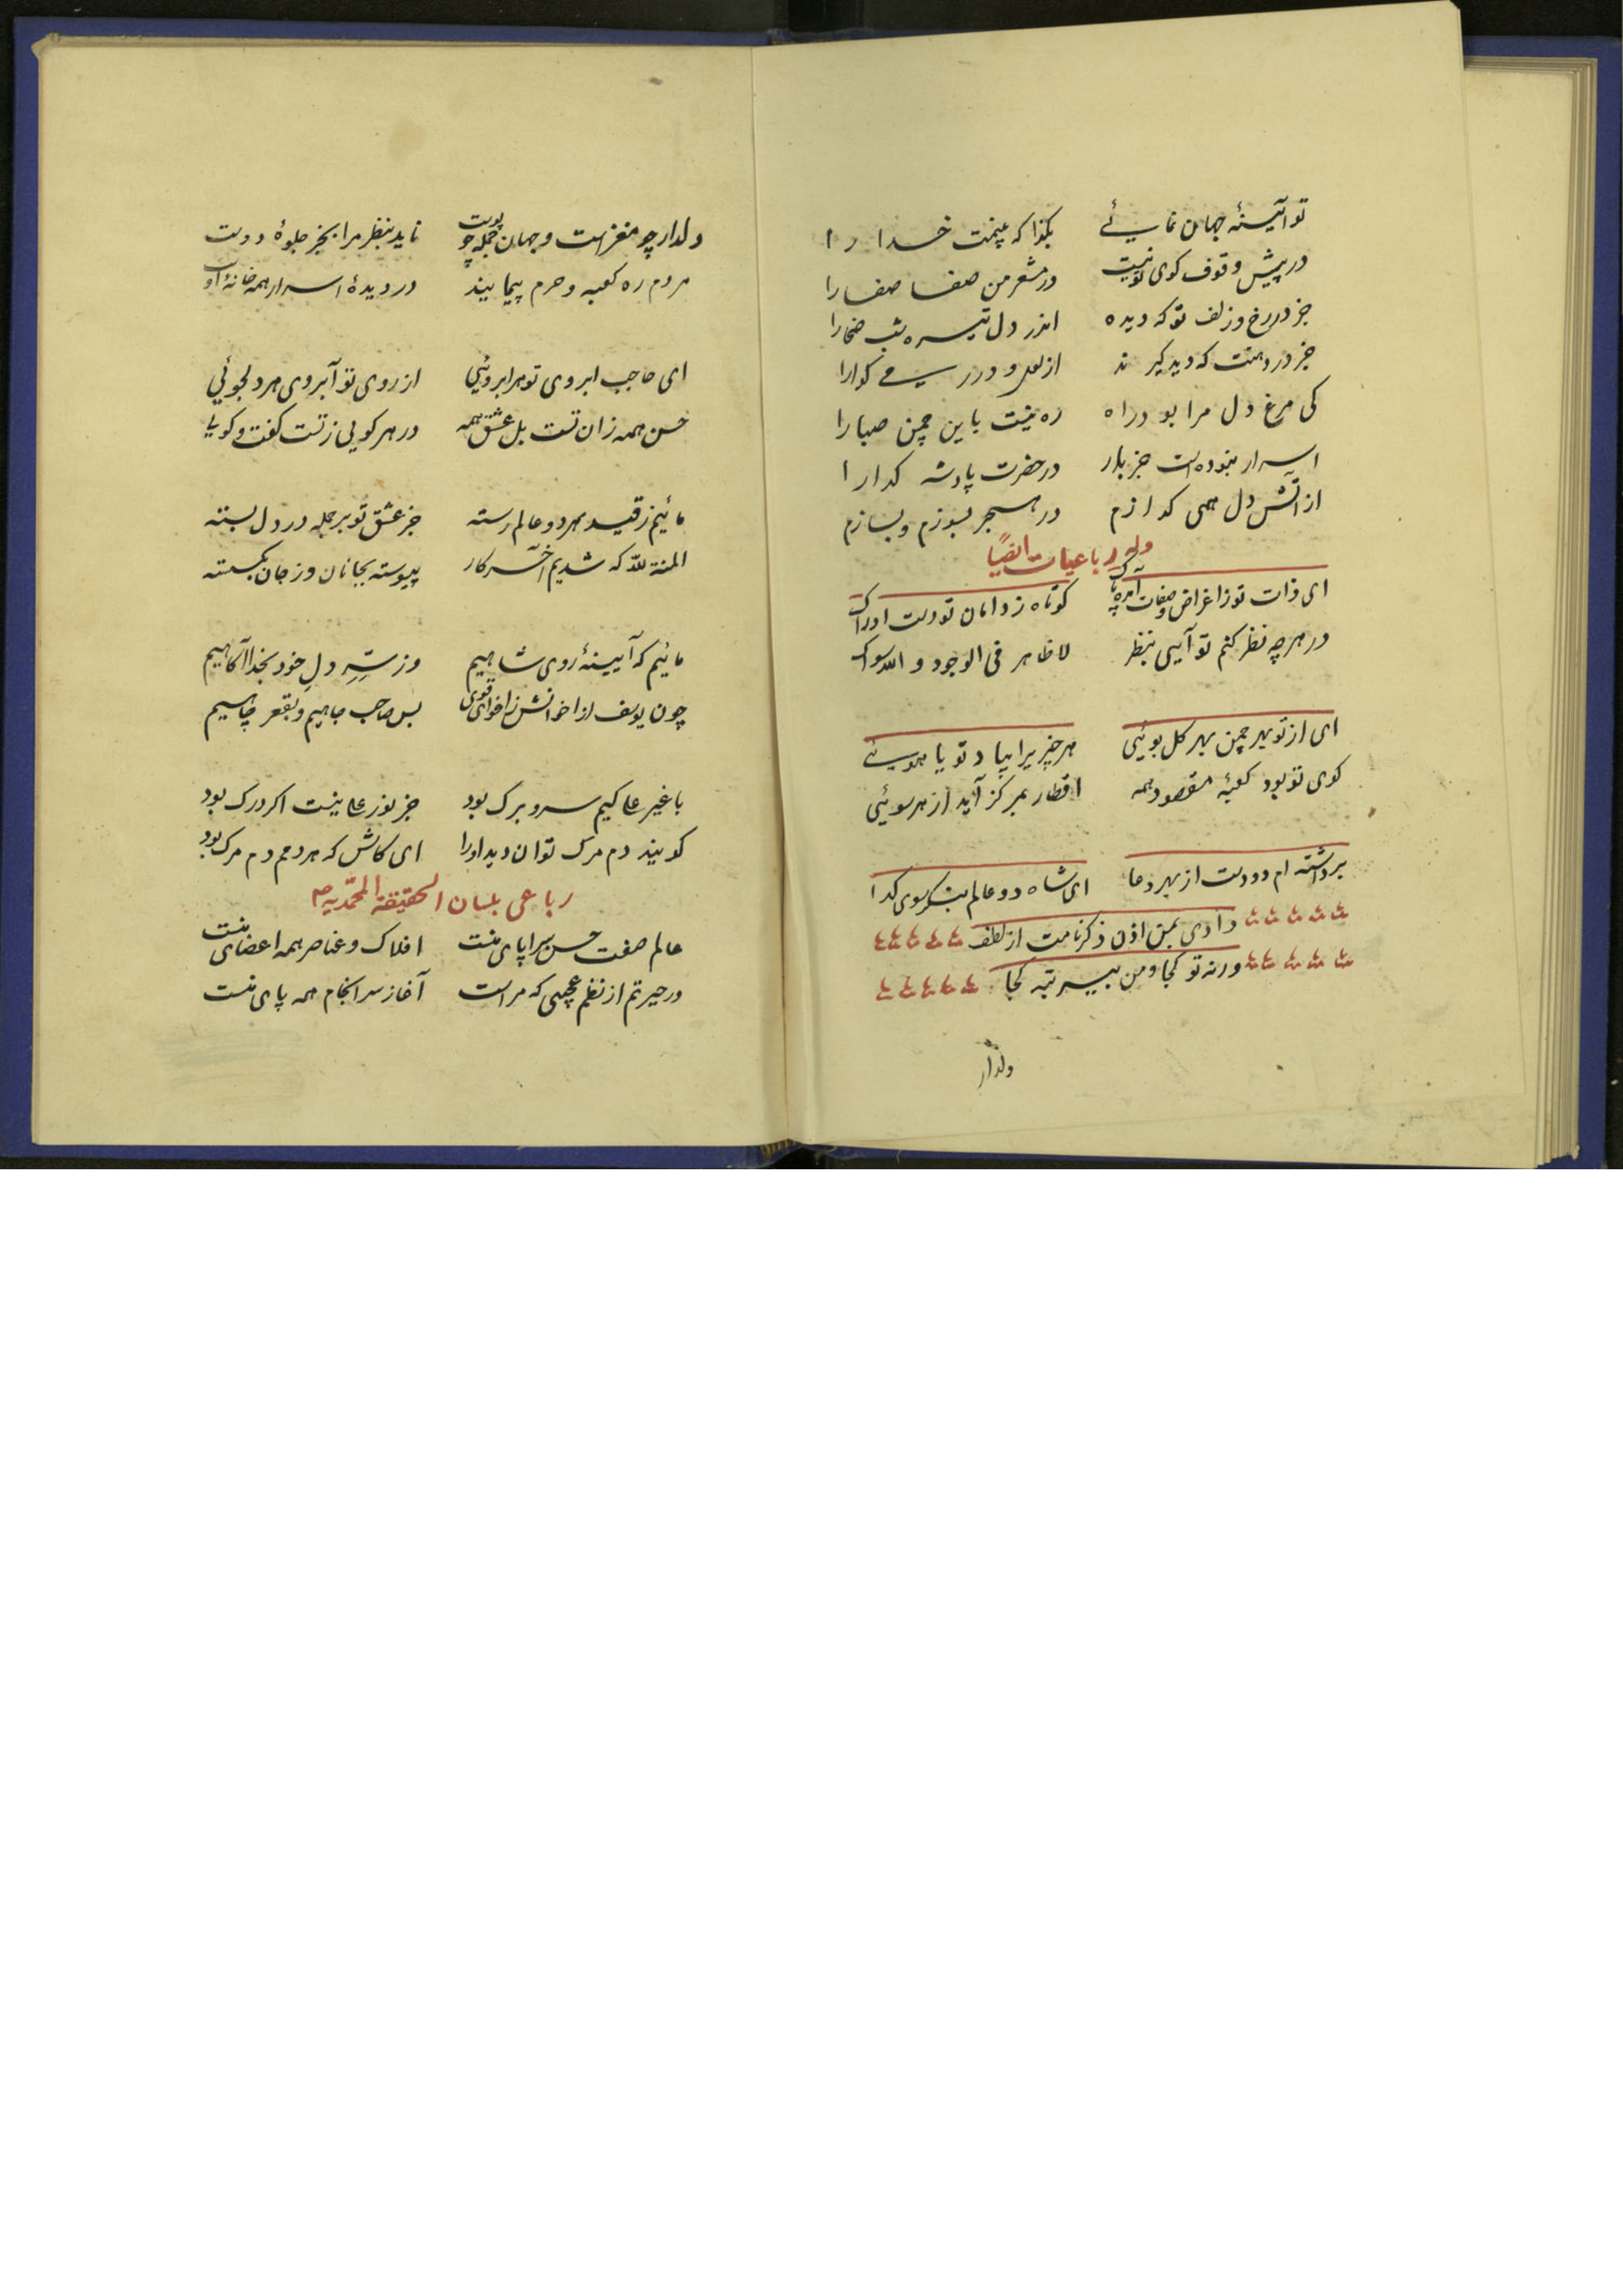 تو آئینهٔ جهان نمایئی بگذا که ببینمت خدا را
در پیش وقوف کوی تو نیست در مشعر من صفا صفا را
جز در رخ و زلف تو که دیده اندر دل تیره شب ضحا را
جز در دهنت که دید گیرند از لعل و درر می کوارا
کی مرغ دل مرا بود راه ره نیست باین چمن صبا را
اسرار نبوده است جز بار در حضرت پادشه کدا را
از آتش دل همی کدازم در هجر بسوزم و بسازم
وله رباعیات ایضاً
ای ذات تو ز اغراض و صفات آمده پاک کوتاه ز دامان تو دست ادراک
در هر چه نظر کنم تو آیی بنظر لا ظاهر فی الوجود و الله سواک
ای از تو بهر چمن بهر کل بوئیی هر چیز یرا بیاد تو یا هویئے
کوی تو بود کعبهٔ مقصود همه اقطار بمرکز آید از هر سوئیی
برداشته ام دو دست از بهر دعا ای شاه دو عالم بنکر سوی کدا
دادی بمن اذن ذکر نامت از لطف
ورنه تو کجا و من بیسر تبه کجا
ولدار
دلدار چو مغز است و جهان جمله چو پوست ناید بنظر مرا بجز جلوهٔ دوست
مردم ره کعبه و حرم پیمایند در دیدهٔ اسرار همه خانهٔ اوست
ای حاجب ابروی تو هر ابروئیی از روی تو آبروی هر دلجوئیی
حسن همه زان تست بل عشق همه در هر کویی ز تست کفت و کویا
مائیم ز قید هر دو عالم رسته جز عشق تو بر جمله در دل بسته
المنة لله که شدیم آخر کار پیوسته بجانان و ز جان بکسسته
مائیم که آیینهٔ روی شاهیم وز سرّ دل خود بخدا آکاهیم
چون یوسف از اخوانش ز اخوای قوی بس صاحب جاهیم و بقعر چاهیم
با غیر علی کیم سر و برک بود جز نور علی نیست اکر درک بود
کویند دم مرک توان دید او را ای کاش که هر دمم دم مرک بود
رباعی بلسان الحقیقة المحمّدیه ص
عالم صفت حسن سراپای منست افلاک و عناصر همه اعضای منست
در حیرتم از نظم عجیبی که مراست آغاز سرانجام همه پای منست